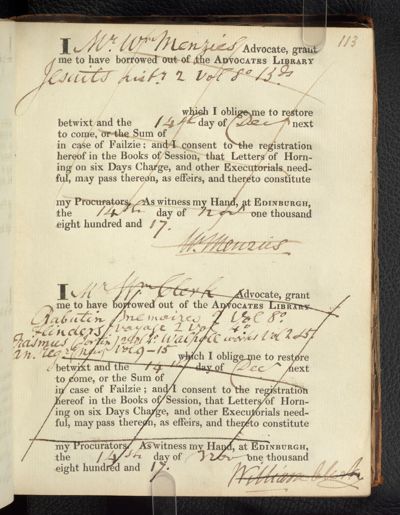 113
I Mr. Wm Menzies Advocate, grant
me to have borrowed out of the ADVOCATES LIBRARY
Jesuits 2 vol 8o
which I oblige me to restore
betwixt and the 14th day of Decr next
to come, or the Sum of
in case of Failzie: and I consent to the registration
hereof in the Books of Session, that Letters of Horn-
ing on six Days Charge, and other Executorials need-
ful, may pass thereon, as effeirs, and thereto constitute
my Procurators. As witness my Hand, at EDINBURGH,
the 14th day of Novr one thousand
eight hundred and 17.
Wm. Menzies
I Mr Wm Clerk Advocate, grant
me to have borrowed out of the ADVOCATES LIBRARY
Rabutin memoires 2 Vol 8o
Flinders voyage 2 vol 4o
Erasmus Walpole works vol 2 & 5
vol 9-15
which I oblige me to restore
betwixt and the 14 day of Decr next
to come, or the Sum of
in case of Failzie: and I consent to the registration
hereof in the Books of Session, that Letters of Horn-
ing on six Days Charge, and other Executorials need-
ful, may pass thereon, as effeirs, and thereto constitute
my Procurators. As witness my Hand, at EDINBURGH,
the 14th day of Novr one thousand
eight hundred and 17.
William Clerk